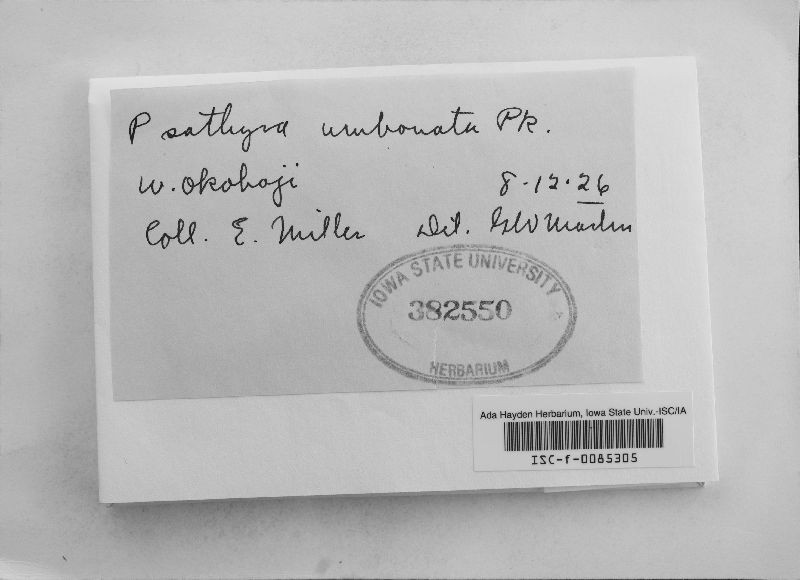 Psathyra umbonata Pk.
W. Okoboji 8-12-26
Coll. E. Miller Det. GW Martin
IOWA STATE UNIVERSITY
382550
HERBARIUM
Ada Hayden Herbarium, Iowa State Univ.-ISC/IA
ISC-f-0085305